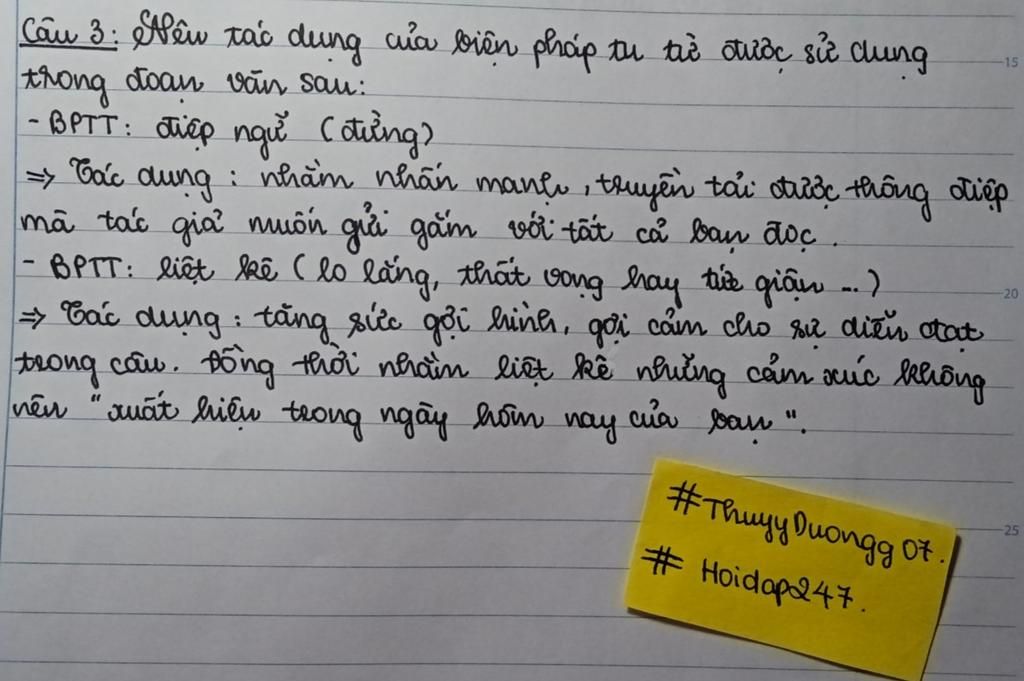 Câu 3: Nêu tác dụng của biện pháp tu từ được sử dụng
trong đoạn văn sau:
- BPTT: điệp ngữ (đừng)
⇒ Tác dụng: nhằm nhấn mạnh, truyền tải được thông điệp
mà tác giả muốn gửi gắm với tất cả bạn đọc.
- BPTT: liệt kê (lo lắng, thất vọng hay tức giận ...)
⇒ Tác dụng: tăng sức gợi hình, gợi cảm cho sự diễn đạt
trong câu. Đồng thời nhằm liệt kê những cảm xúc không
nên "xuất hiện trong ngày hôm nay của bạn".
#ThuyyDuongg07.
#Hoidap247.
15
20
25